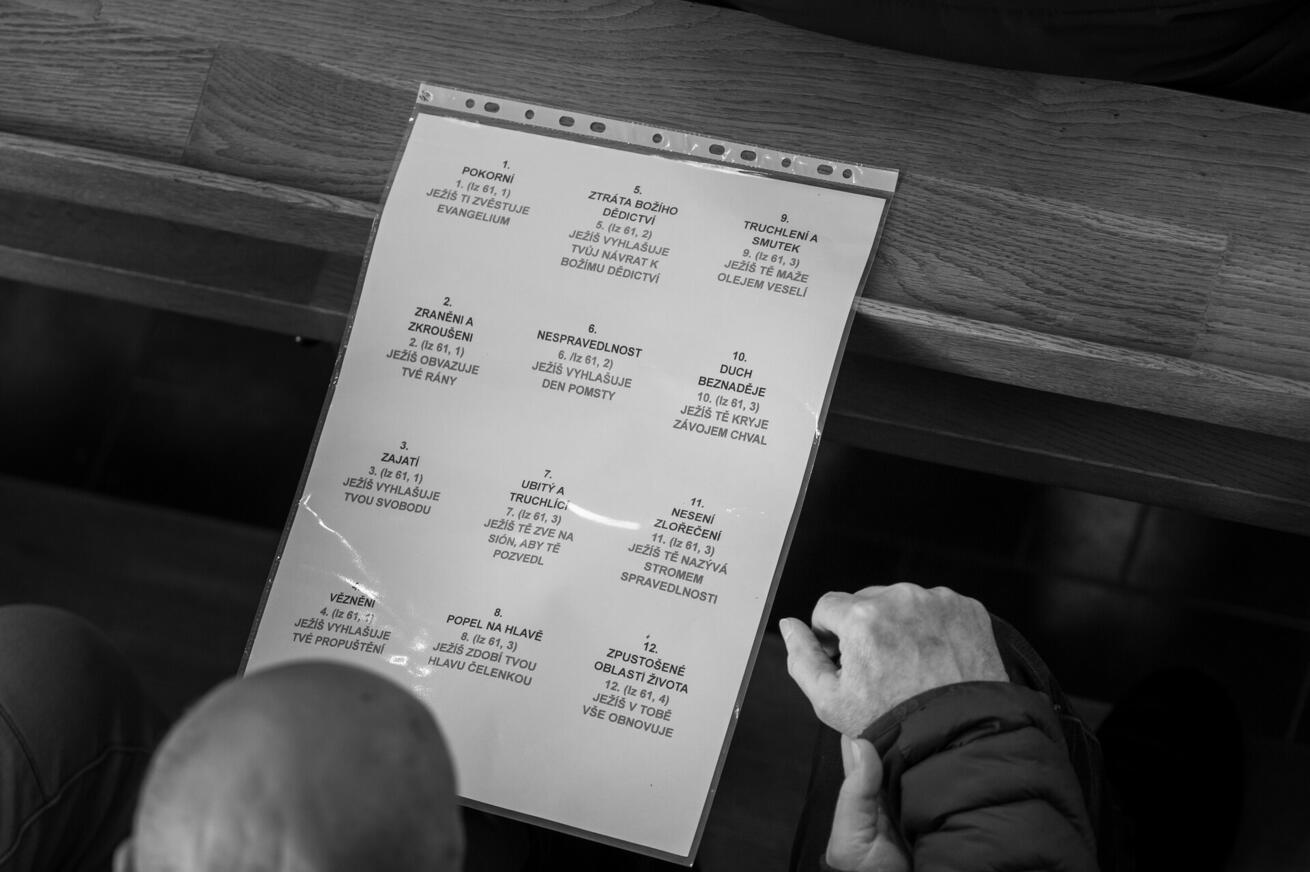 1.
POKORNÍ
1. (Iz 61, 1)
JEŽÍŠ TI ZVĚSTUJE
EVANGELIUM
2.
ZRANĚNI A
ZKROUŠENI
2. (Iz 61, 1)
JEŽÍŠ OBVAZUJE
TVÉ RÁNY
3.
ZAJATÍ
3. (Iz 61, 1)
JEŽÍŠ VYHLAŠUJE
TVOU SVOBODU
4.
VĚZNĚNI
4. (Iz 61, 1)
JEŽÍŠ VYHLAŠUJE
TVÉ PROPUŠTĚNÍ
5.
ZTRÁTA BOŽÍHO
DĚDICTVÍ
5. (Iz 61, 2)
JEŽÍŠ VYHLAŠUJE
TVŮJ NÁVRAT K
BOŽÍMU DĚDICTVÍ
6.
NESPRAVEDLNOST
6. /Iz 61, 2)
JEŽÍŠ VYHLAŠUJE
DEN POMSTY
7.
UBITÝ A
TRUCHLÍCÍ
7. (Iz 61, 3)
JEŽÍŠ TĚ ZVE NA
SIÓN, ABY TĚ
POZVEDL
8.
POPEL NA HLAVĚ
8. (Iz 61, 3)
JEŽÍŠ ZDOBÍ TVOU
HLAVU ČELENKOU
9.
TRUCHLENÍ A
SMUTEK
9. (Iz 61, 3)
JEŽÍŠ TĚ MAŽE
OLEJEM VESELÍ
10.
DUCH
BEZNADĚJE
10. (Iz 61, 3)
JEŽÍŠ TĚ KRYJE
ZÁVOJEM CHVAL
11.
NESENÍ
ZLOŘEČENÍ
11. (Iz 61, 3)
JEŽÍŠ TĚ NAZÝVÁ
STROMEM
SPRAVEDLNOSTI
12.
ZPUSTOŠENÉ
OBLASTI ŽIVOTA
12. (Iz 61, 4)
JEŽÍŠ V TOBĚ
VŠE OBNOVUJE